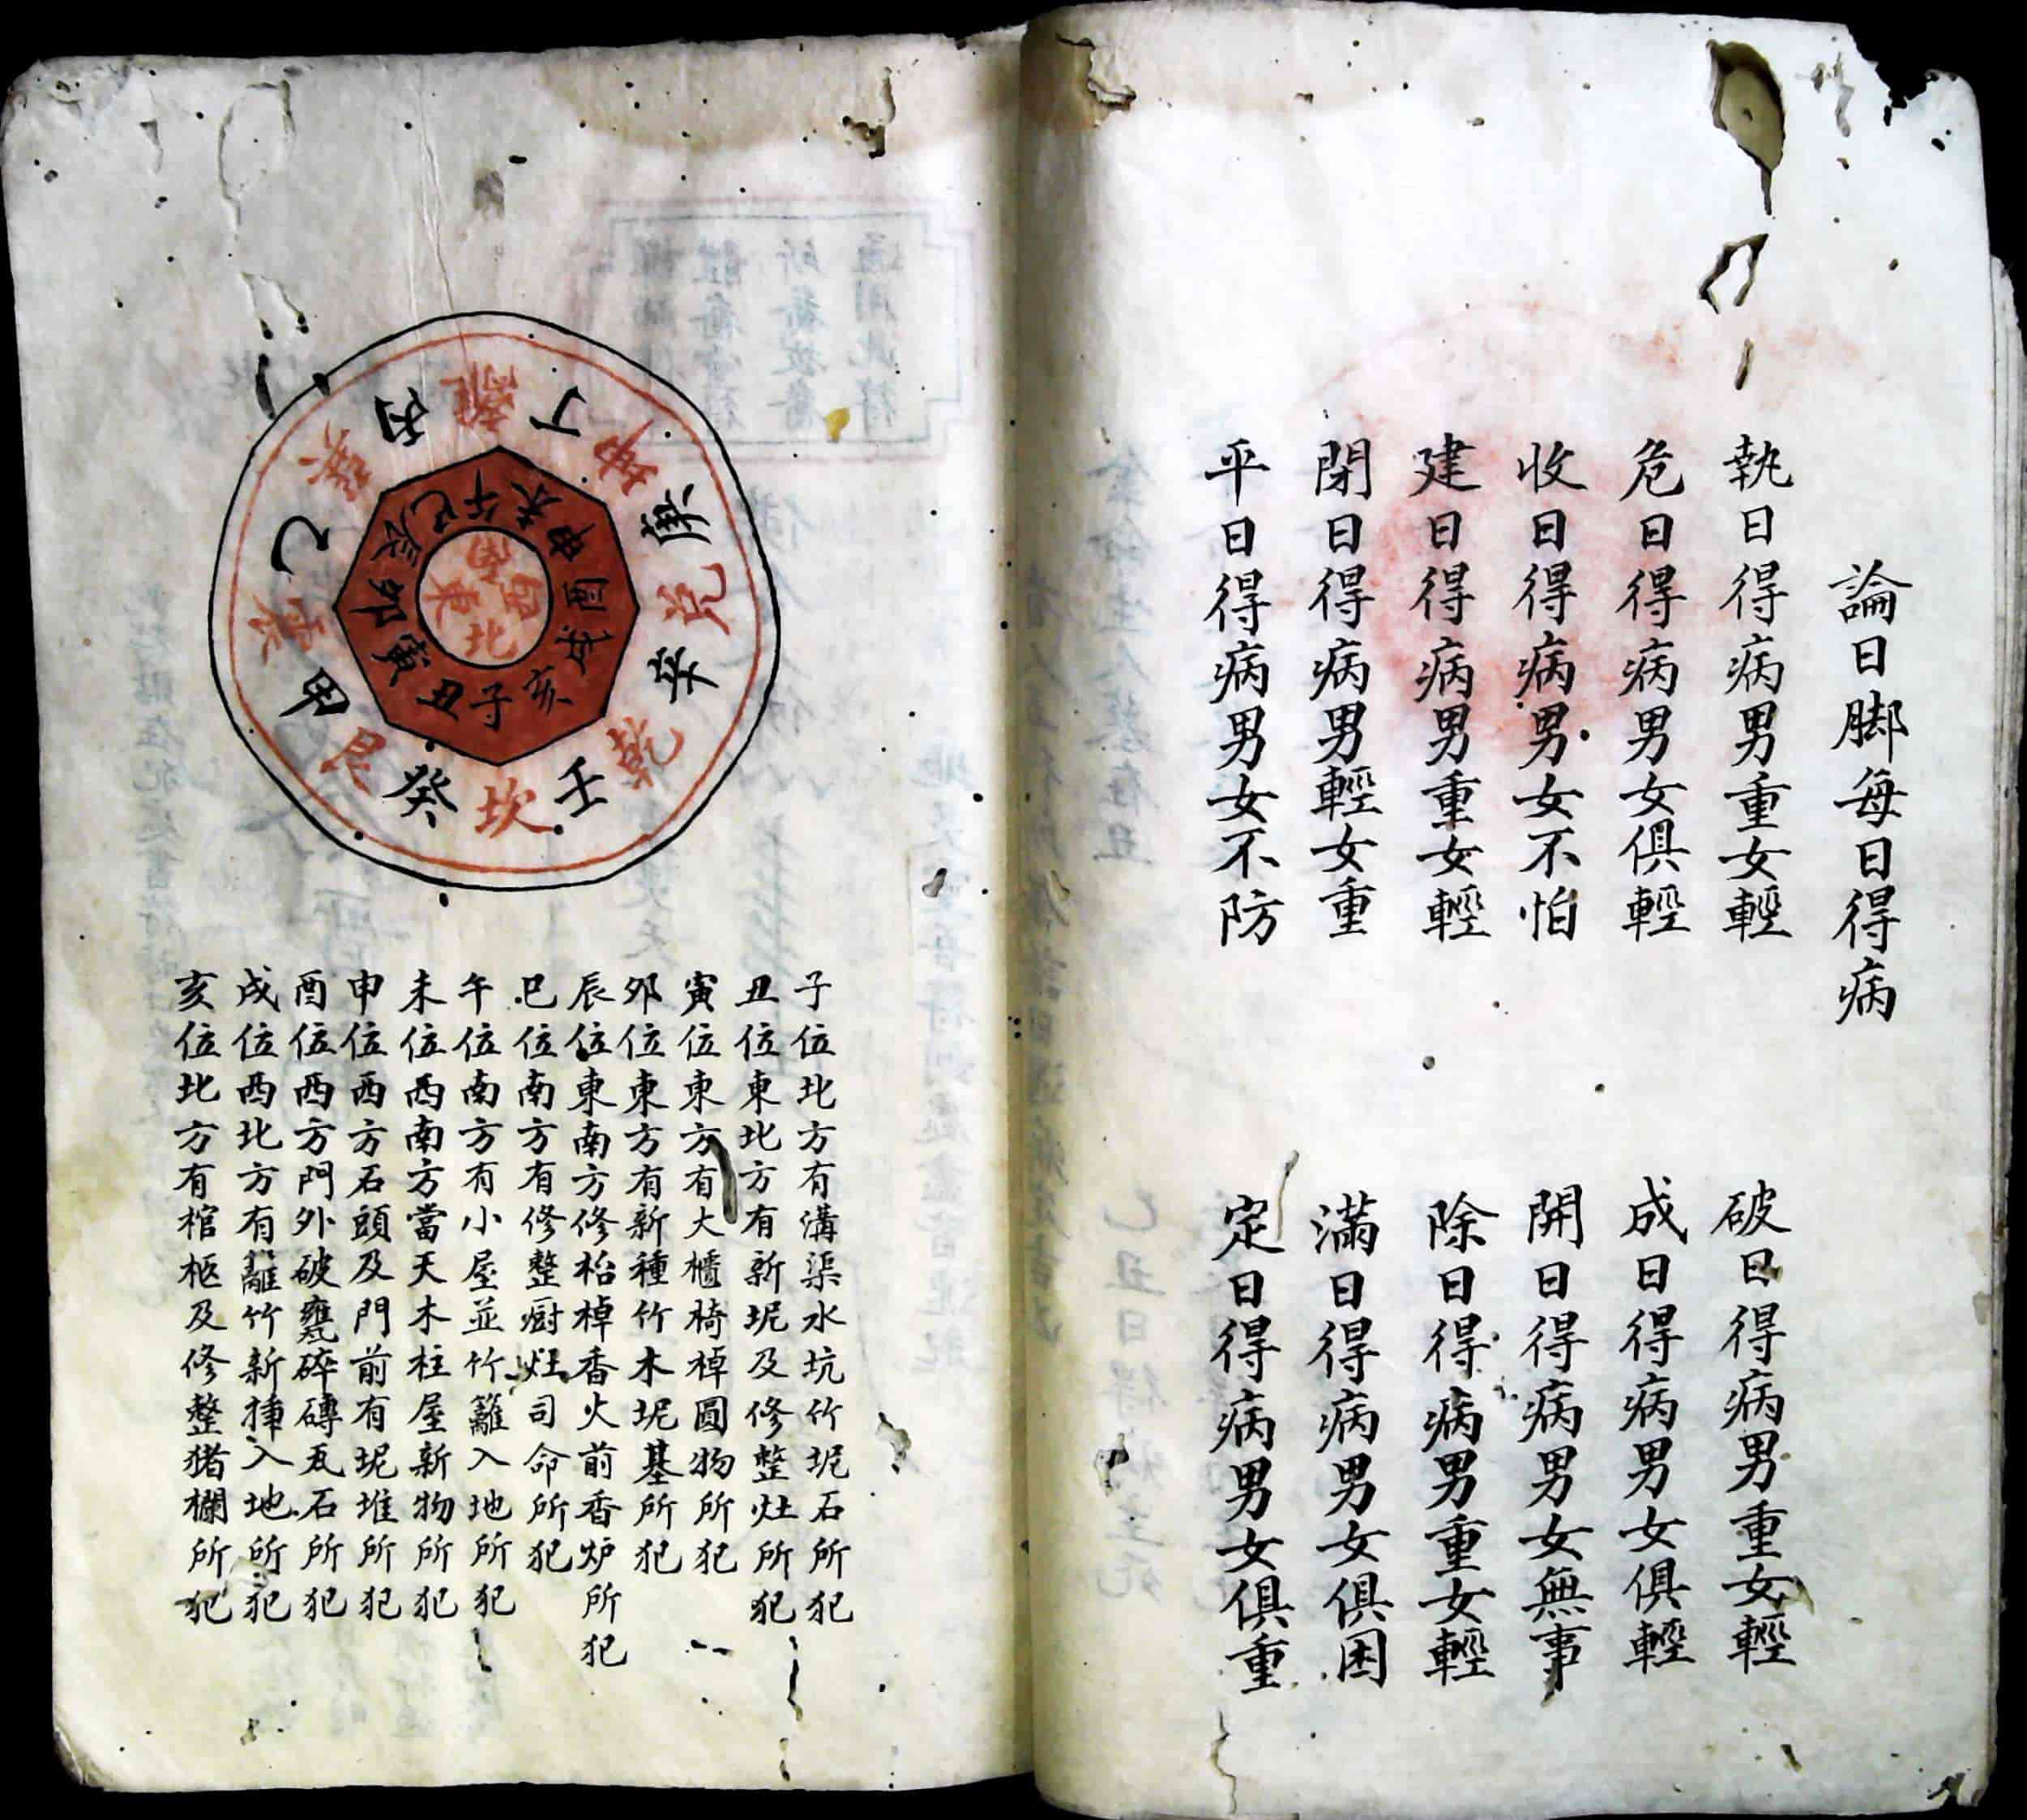 論日脚每日得病
執日得病男重女輕
破日得病男重女輕
危日得病男女俱輕
成日得病男女俱輕
收日得病男女不怕
開日得病男女無事
建日得病男重女輕
除日得病男重女輕
閉日得病男輕女重
滿日得病男女俱困
平日得病男女不防
定日得病男女俱重
離
丁
坤
庚
兌
辛
乾
壬
坎
癸
艮
甲
震
乙
巽
丙
午未申酉戌亥子丑寅卯辰巳
南
西
北
東
子位北方有溝渠水坑竹坭石所犯
丑位東北方有新坭及修整灶所犯
寅位東方有大櫃椅棹圓物所犯
卯位東方有新種竹木坭基所犯
辰位東南方修枱棹香火前香炉所犯
巳位南方有修整厨灶司命所犯
午位南方有小屋並竹籬入地所犯
未位西南方當天木柱屋新物所犯
申位西方石頭及門前有坭堆所犯
酉位西方門外破甕碎磚瓦石所犯
戌位西北方有籬竹新揷入地所犯
亥位北方有棺柩及修整猪欄所犯